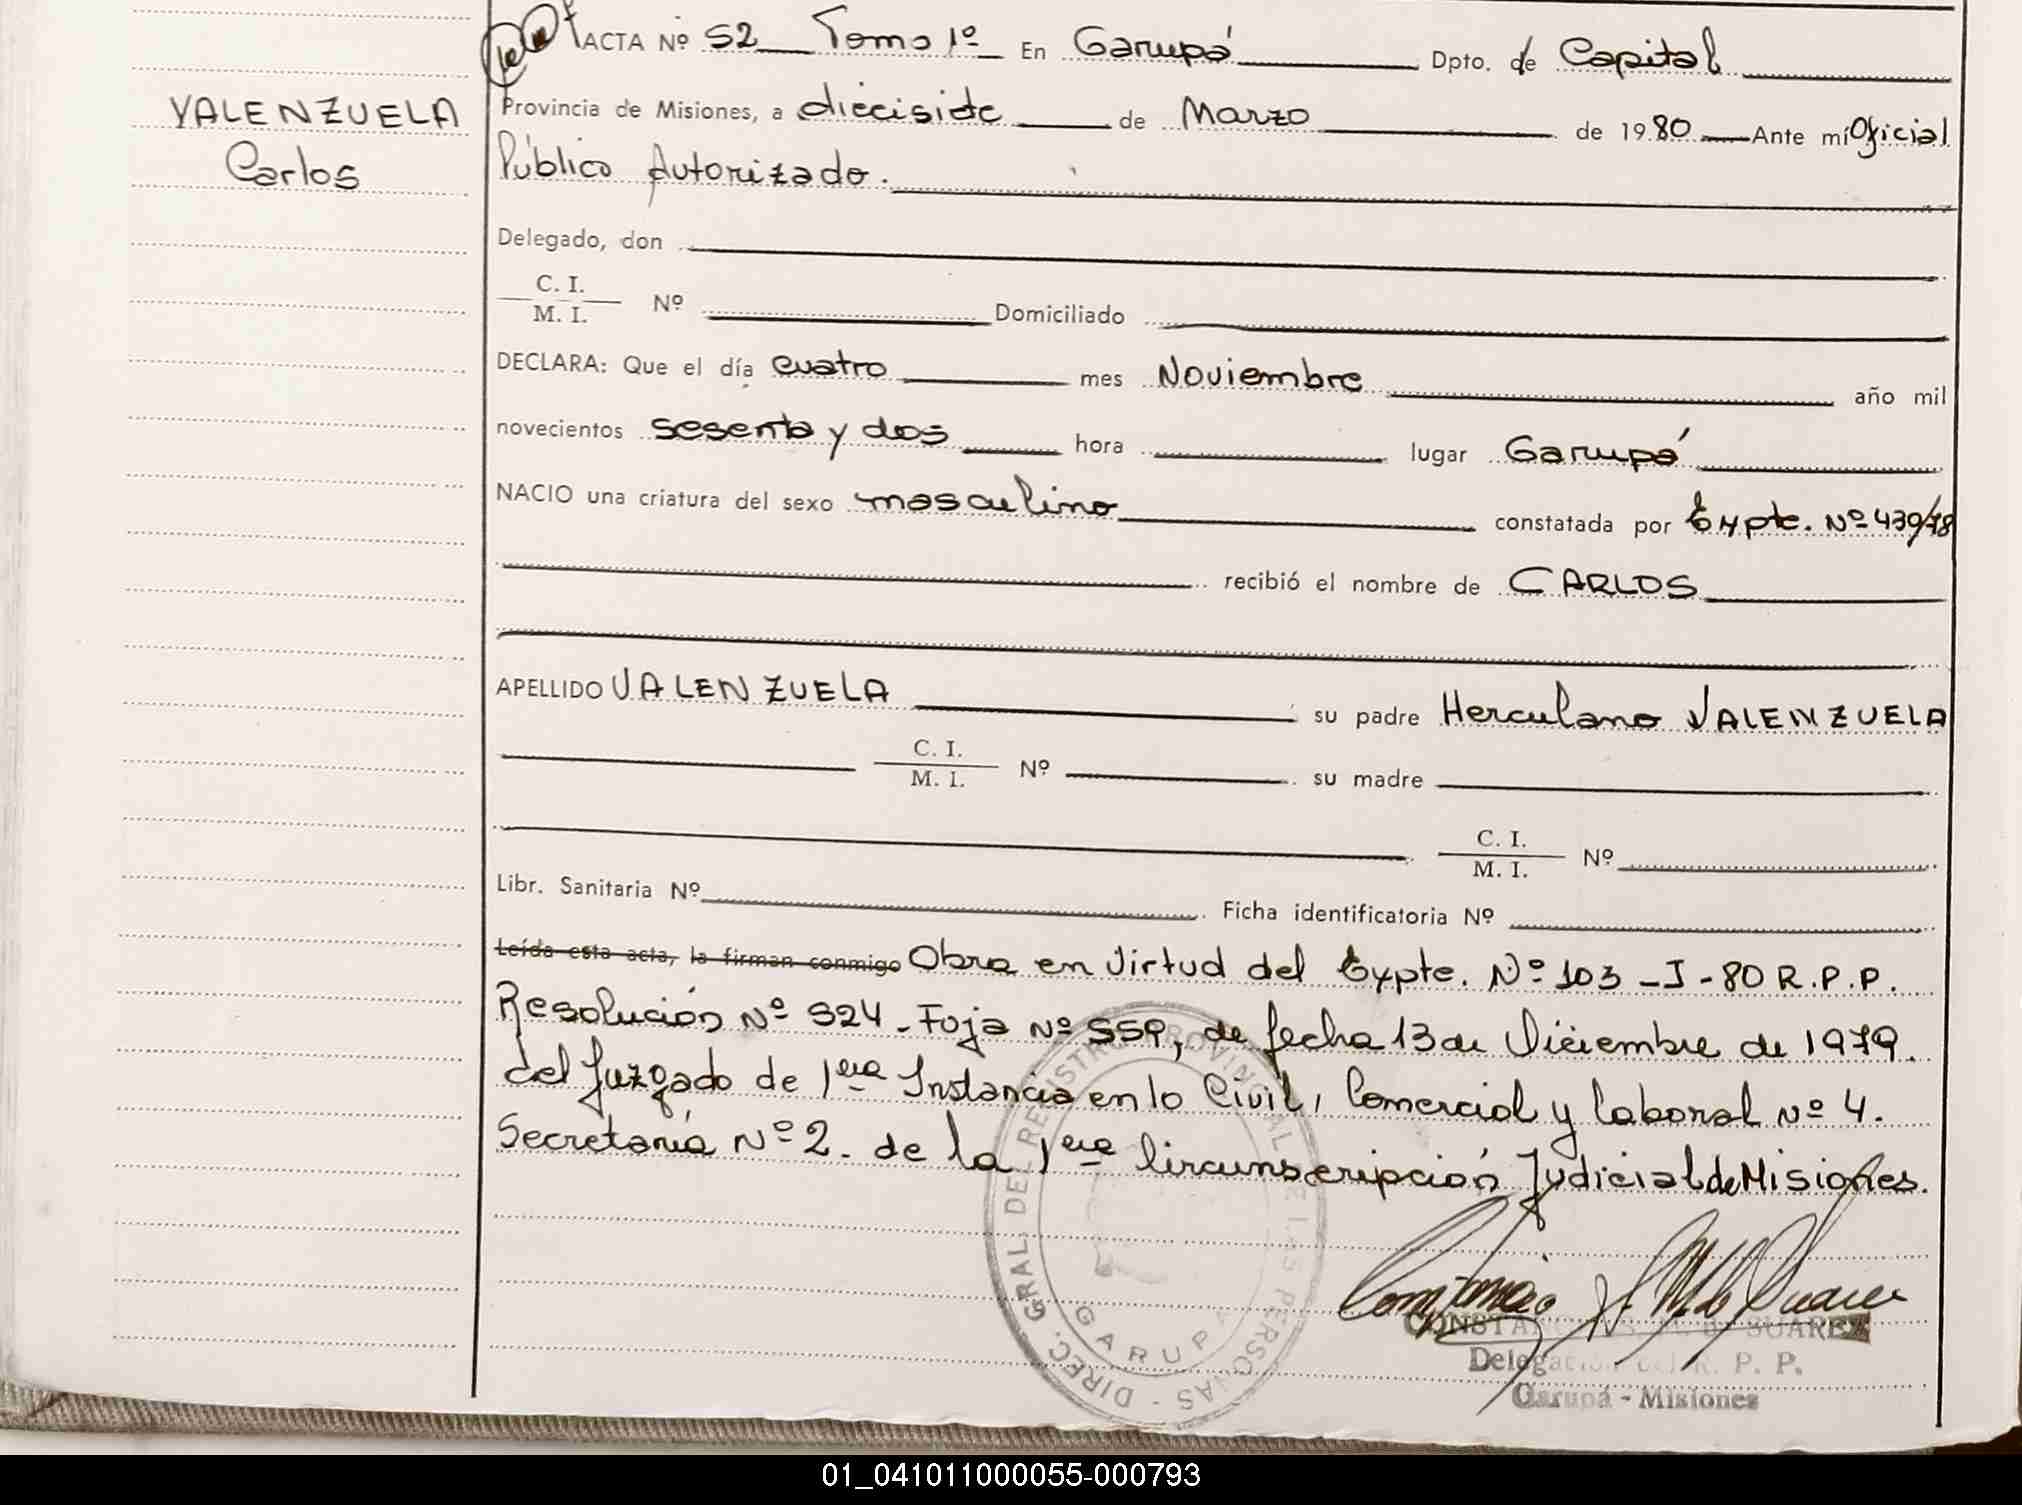 ACTA Nº 52 Tomo 1º En Garupá Dpto. de Capital
VALENZUELA
Carlos
Provincia de Misiones, a dieciside de Marzo de 1980 Ante mí Oficial
Público Autorizado.
Delegado, don
C. I.
M. I. Nº Domiciliado
DECLARA: Que el día cuatro mes Noviembre año mil
novecientos sesenta y dos hora lugar Garupá
NACIO una criatura del sexo masculino constatada por Expte. Nº 439/78
recibió el nombre de CARLOS
APELLIDO VALENZUELA su padre Herculano VALENZUELA
C. I.
M. I. Nº su madre
C. I.
M. I. Nº
Libr. Sanitaria Nº Ficha identificatoria Nº
Leída esta acta, la firman conmigo Obra en virtud del Expte. Nº 103-J-80 R.P.P.
Resolución Nº 324 - Foja Nº 559, de fecha 13 de Diciembre de 1979.
del Juzgado de 1era Instancia en lo Civil, Comercial y Laboral Nº 4.
Secretaría Nº 2. de la 1era Circunscripción Judicial de Misiones.
DIREC. GRAL. DEL REGISTRO PROVINCIAL DE LAS PERSONAS
GARUPA
SUAREZ
Delegación del R. P. P.
Garupá - Misiones
01_041011000055-000793